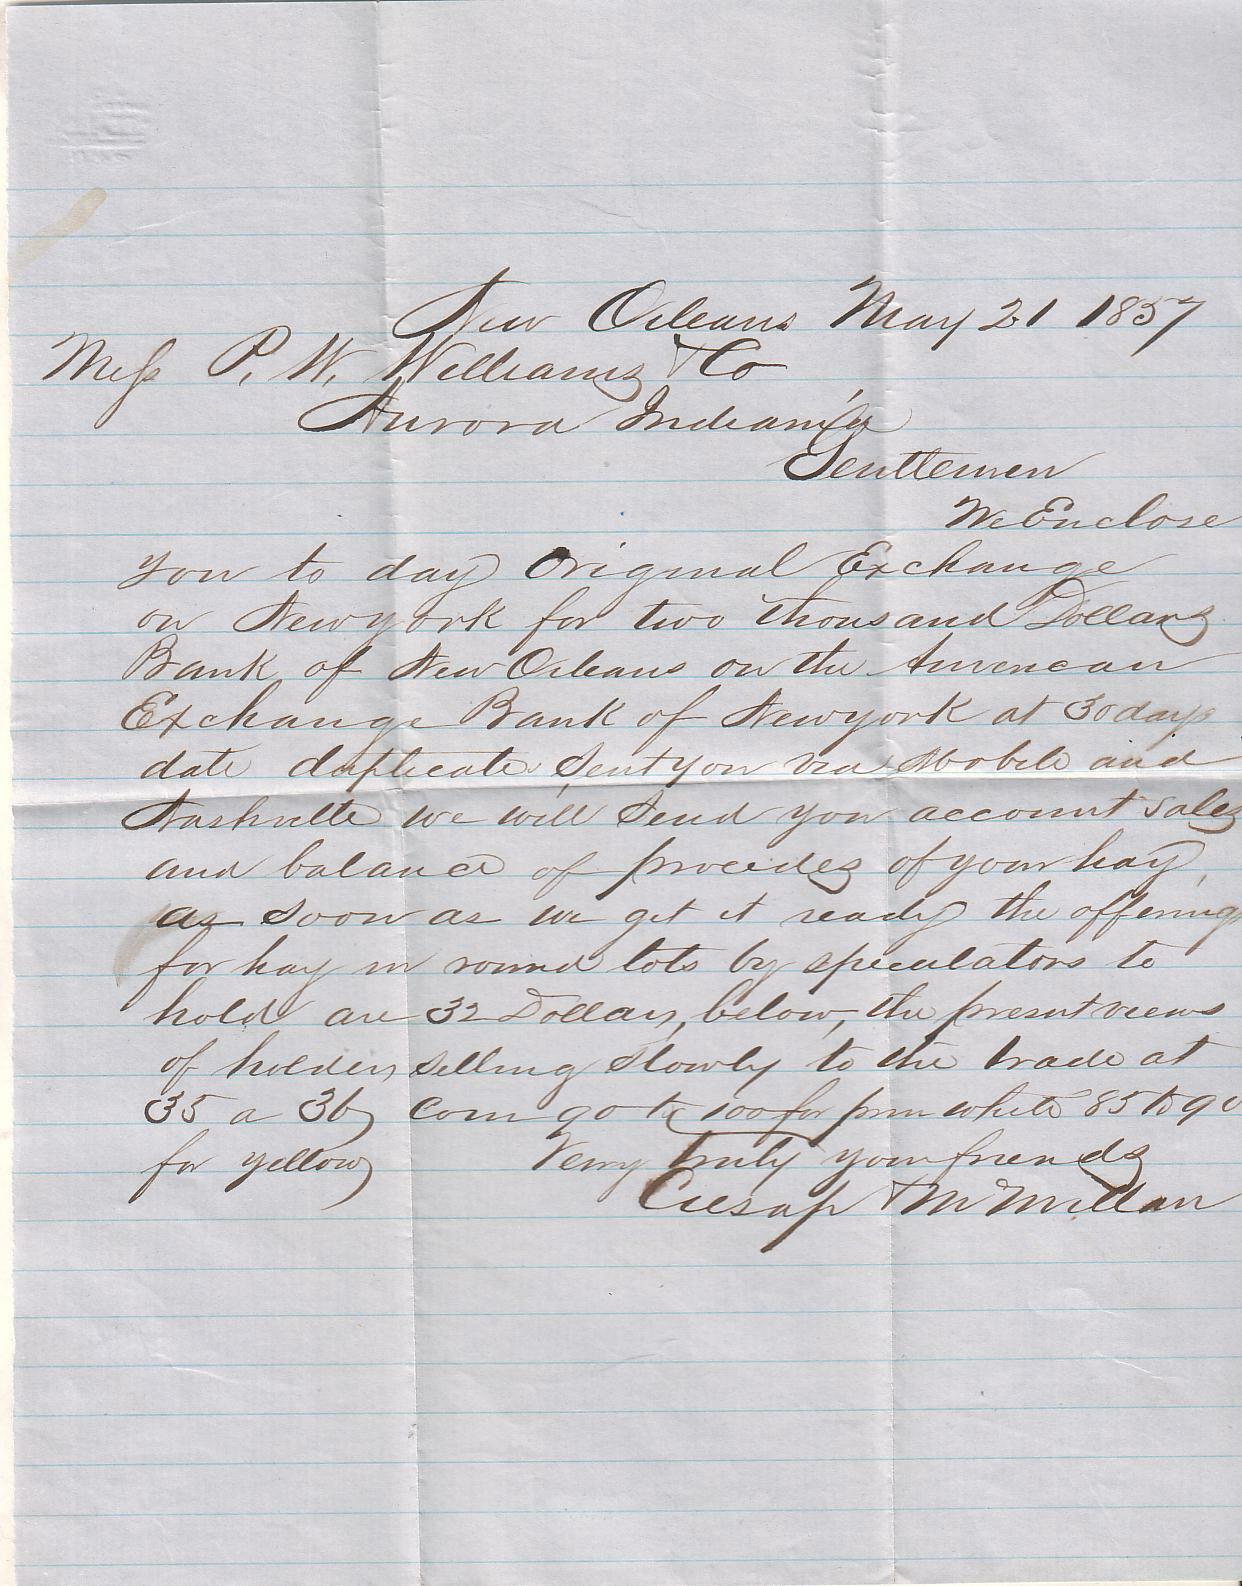 New Orleans May 21 1857
Mess P. W. Williams & Co
Aurora Indiana
Gentlemen
We Enclose
you to day Original Exchange
on Newyork for two thousand Dollars
Bank of New Orleans on the American
Exchange Bank of Newyork at 30 days
date duplicate sent you via Mobile and
Nashville we will send you account sales
and balance of proceeds of your hay,
as soon as we get it ready the offerings
for hay in round lots by speculators to
hold are 32 Dollars, below, the present views
of holders, selling slowly to the trade at
35 a 36 corn 90 to 100 for prim white 85 to 90
for yellow Verry truly your friends
& McMillan